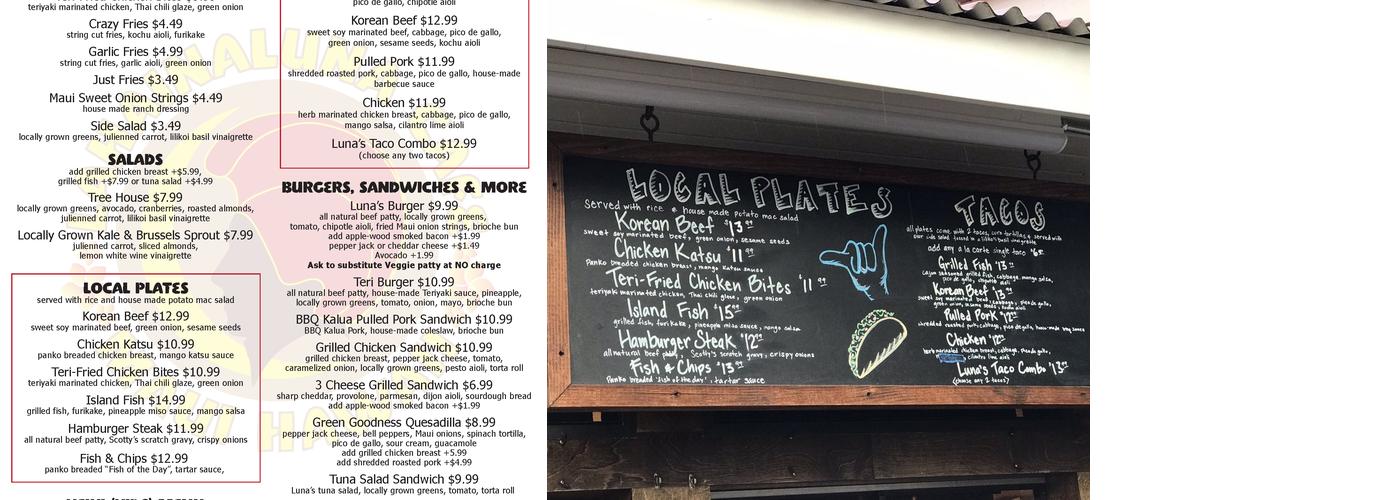 teriyaki marinated chicken, Thai chili glaze, green onion
Crazy Fries $4.49
string cut fries, kochu aioli, furikake
Garlic Fries $4.99
string cut fries, garlic aioli, green onion
Just Fries $3.49
Maui Sweet Onion Strings $4.49
house made ranch dressing
Side Salad $3.49
locally grown greens, julienned carrot, lilikoi basil vinaigrette
SALADS
add grilled chicken breast +$5.99,
grilled fish +$7.99 or tuna salad +$4.99
Tree House $7.99
locally grown greens, avocado, cranberries, roasted almonds,
julienned carrot, lilikoi basil vinaigrette
Locally Grown Kale & Brussels Sprout $7.99
julienned carrot, sliced almonds,
lemon white wine vinaigrette
LOCAL PLATES
served with rice and house made potato mac salad
Korean Beef $12.99
sweet soy marinated beef, green onion, sesame seeds
Chicken Katsu $10.99
panko breaded chicken breast, mango katsu sauce
Teri-Fried Chicken Bites $10.99
teriyaki marinated chicken, Thai chili glaze, green onion
Island Fish $14.99
grilled fish, furikake, pineapple miso sauce, mango salsa
Hamburger Steak $11.99
all natural beef patty, Scotty's scratch gravy, crispy onions
Fish & Chips $12.99
panko breaded "Fish of the Day", tartar sauce,
pico de gallo, chipotle aioli
Korean Beef $12.99
sweet soy marinated beef, cabbage, pico de gallo,
green onion, sesame seeds, kochu aioli
Pulled Pork $11.99
shredded roasted pork, cabbage, pico de gallo, house-made
barbecue sauce
Chicken $11.99
herb marinated chicken breast, cabbage, pico de gallo,
mango salsa, cilantro lime aioli
Luna's Taco Combo $12.99
(choose any two tacos)
BURGERS, SANDWICHES & MORE
Luna's Burger $9.99
all natural beef patty, locally grown greens,
tomato, chipotle aioli, fried Maui onion strings, brioche bun
add apple-wood smoked bacon +$1.99
pepper jack or cheddar cheese +$1.49
Avocado +1.99
Ask to substitute Veggie patty at NO charge
Teri Burger $10.99
all natural beef patty, house-made Teriyaki sauce, pineapple,
locally grown greens, tomato, onion, mayo, brioche bun
BBQ Kalua Pulled Pork Sandwich $10.99
BBQ Kalua Pork, house-made coleslaw, brioche bun
Grilled Chicken Sandwich $10.99
grilled chicken breast, pepper jack cheese, tomato,
caramelized onion, locally grown greens, pesto aioli, torta roll
3 Cheese Grilled Sandwich $6.99
sharp cheddar, provolone, parmesan, dijon aioli, sourdough bread
add apple-wood smoked bacon +$1.99
Green Goodness Quesadilla $8.99
pepper jack cheese, bell peppers, Maui onions, spinach tortilla,
pico de gallo, sour cream, guacamole
add grilled chicken breast +5.99
add shredded roasted pork +$4.99
Tuna Salad Sandwich $9.99
Luna's tuna salad, locally grown greens, tomato, torta roll
LOCAL PLATES
Served with rice & house made potato mac salad
Korean Beef $13.99
sweet soy marinated beef, green onion, sesame seeds
Chicken Katsu $11.99
Panko breaded chicken breast, mango katsu sauce
Teri-Fried Chicken Bites $11.99
teriyaki marinated chicken, Thai chili glaze, green onion
Island Fish $15.99
grilled fish, furikake, pineapple miso sauce, mango salsa
Hamburger Steak $12.99
all natural beef patty, Scotty's scratch gravy, crispy onions
Fish & Chips $13.99
Panko breaded 'fish of the day', tartar sauce
TACOS
all plates come with 2 tacos, corn tortillas & served with
add any a la carte single taco
Grilled Fish
cajun seasoned grilled fish, cabbage, mango salsa,
pico de gallo, chipotle aioli
Korean Beef
sweet soy marinated beef, cabbage, pico de gallo,
Pulled Pork
shredded roasted pork, cabbage, pico de gallo, house-made
Chicken
herb marinated chicken breast, cabbage, pico de gallo,
cilantro lime aioli
Luna's Taco Combo
(choose any 2 tacos)